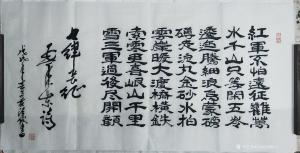 紅軍不怕遠征難萬
水千山只等閑五嶺
逶迤騰細浪烏蒙磅
礴走泥丸金沙水拍
雲崖暖大渡橋橫鉄
索寒更喜岷山千里
雪三軍過後尽開顏
七律長征
毛澤東詩
戊戌年